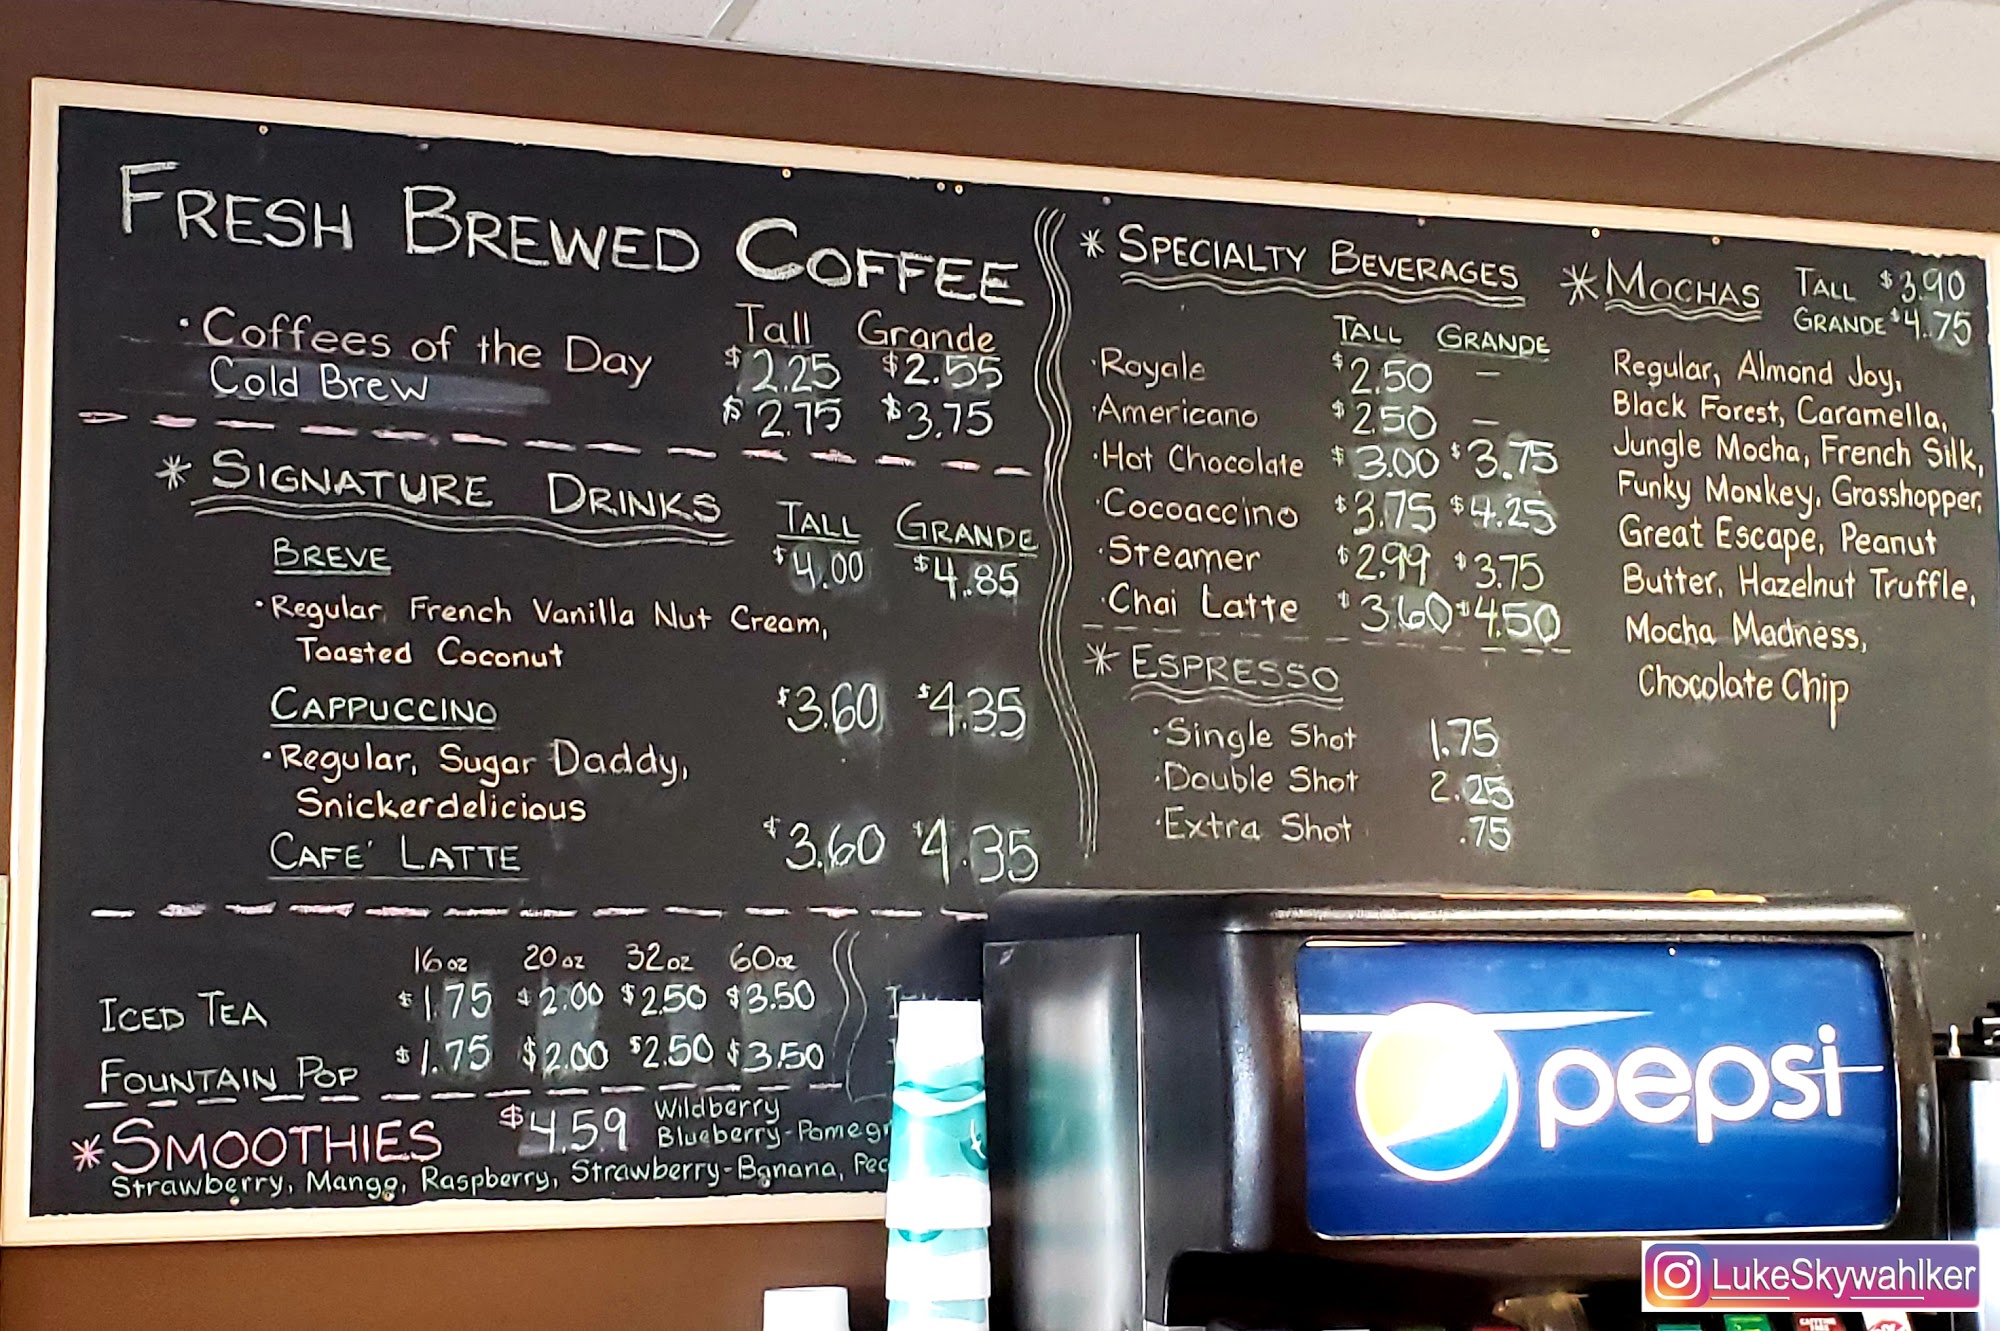 FRESH BREWED COFFEE
Tall Grande
· Coffees of the Day $2.25 $2.55
Cold Brew $2.75 $3.75
* SIGNATURE DRINKS
TALL GRANDE
BREVE $4.00 $4.85
· Regular, French Vanilla Nut Cream,
Toasted Coconut
CAPPUCCINO $3.60 $4.35
· Regular, Sugar Daddy,
Snickerdelicious
CAFE' LATTE $3.60 $4.35
16 oz 20 oz 32 oz 60 oz
ICED TEA $1.75 $2.00 $2.50 $3.50
FOUNTAIN POP $1.75 $2.00 $2.50 $3.50
* SMOOTHIES $4.59 Wildberry
Blueberry-Pomegr
Strawberry, Mango, Raspberry, Strawberry-Banana,
* SPECIALTY BEVERAGES
TALL GRANDE
· Royale $2.50 —
· Americano $2.50 —
· Hot Chocolate $3.00 $3.75
· Cocoaccino $3.75 $4.25
· Steamer $2.99 $3.75
· Chai Latte $3.60 $4.50
* ESPRESSO
· Single Shot 1.75
· Double Shot 2.25
· Extra Shot .75
* MOCHAS TALL $3.90
GRANDE $4.75
Regular, Almond Joy,
Black Forest, Caramella,
Jungle Mocha, French Silk,
Funky Monkey, Grasshopper,
Great Escape, Peanut
Butter, Hazelnut Truffle,
Mocha Madness,
Chocolate Chip
pepsi
LukeSkywahlker